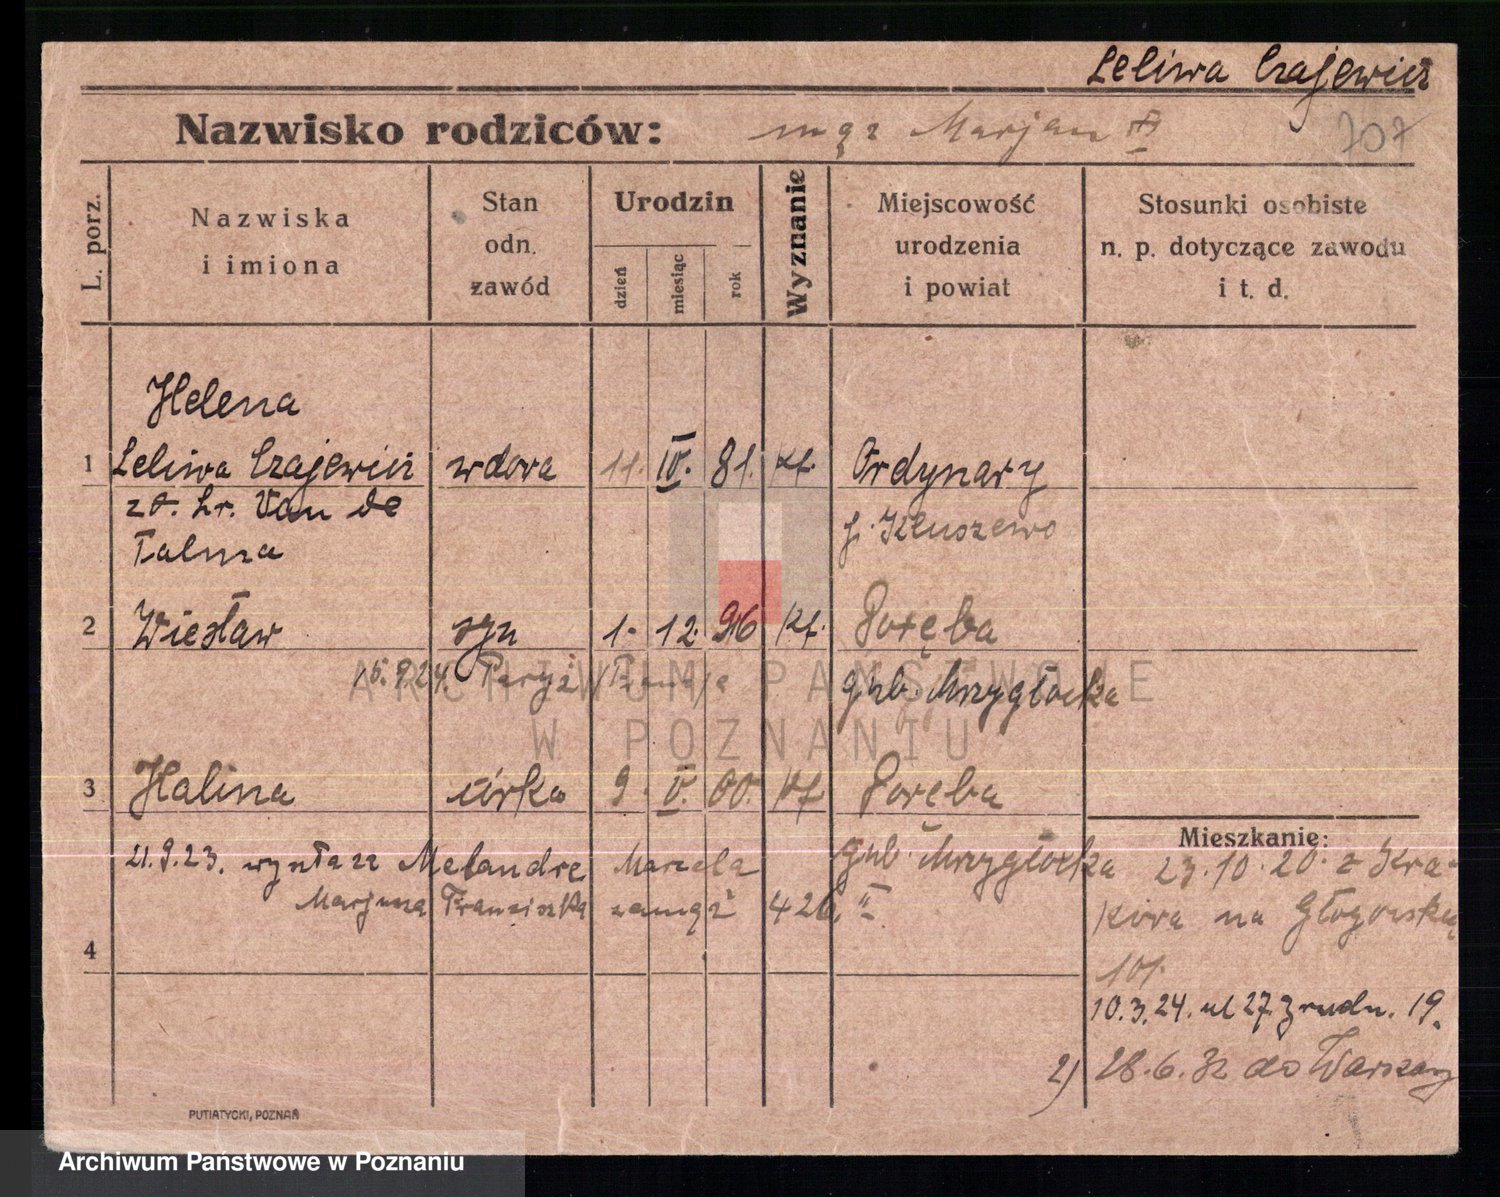 Leliwa Czajewicz
Nazwisko rodziców: mąż Marjan 707
L. porz.
Nazwiska
i imiona
Stan
odn.
zawód
Urodzin
dzień
miesiąc
rok
Wyznanie
Miejscowość
urodzenia
i powiat
Stosunki osobiste
n. p. dotyczące zawodu
i t. d.
Helena
1 Leliwa Czajewicz wdowa 11. IV. 81. kt. Ordynary
z d. hr. Van de p. Kluszewo
Talma
2 Wiesław syn 1. 12. 96 kt. Poręba
15.9.24. Paryż /Francja gub. Mrzygłocka
3 Halina córka 9. V. 00. kt. Poręba
gub. Mrzygłocka
21.9.23. Melandre Marcela
Marjusza Franciszka zamąż 420 II
4
Mieszkanie:
23.10.20. z Kra-
kowa na Głogowską
101.
10.3.24. ul 27 grudn. 19.
2) 28.6.32 do Warszawy
PUTIATYCKI, POZNAŃ
ARCHIWUM PAŃSTWOWE
W POZNANIU
Archiwum Państwowe w Poznaniu